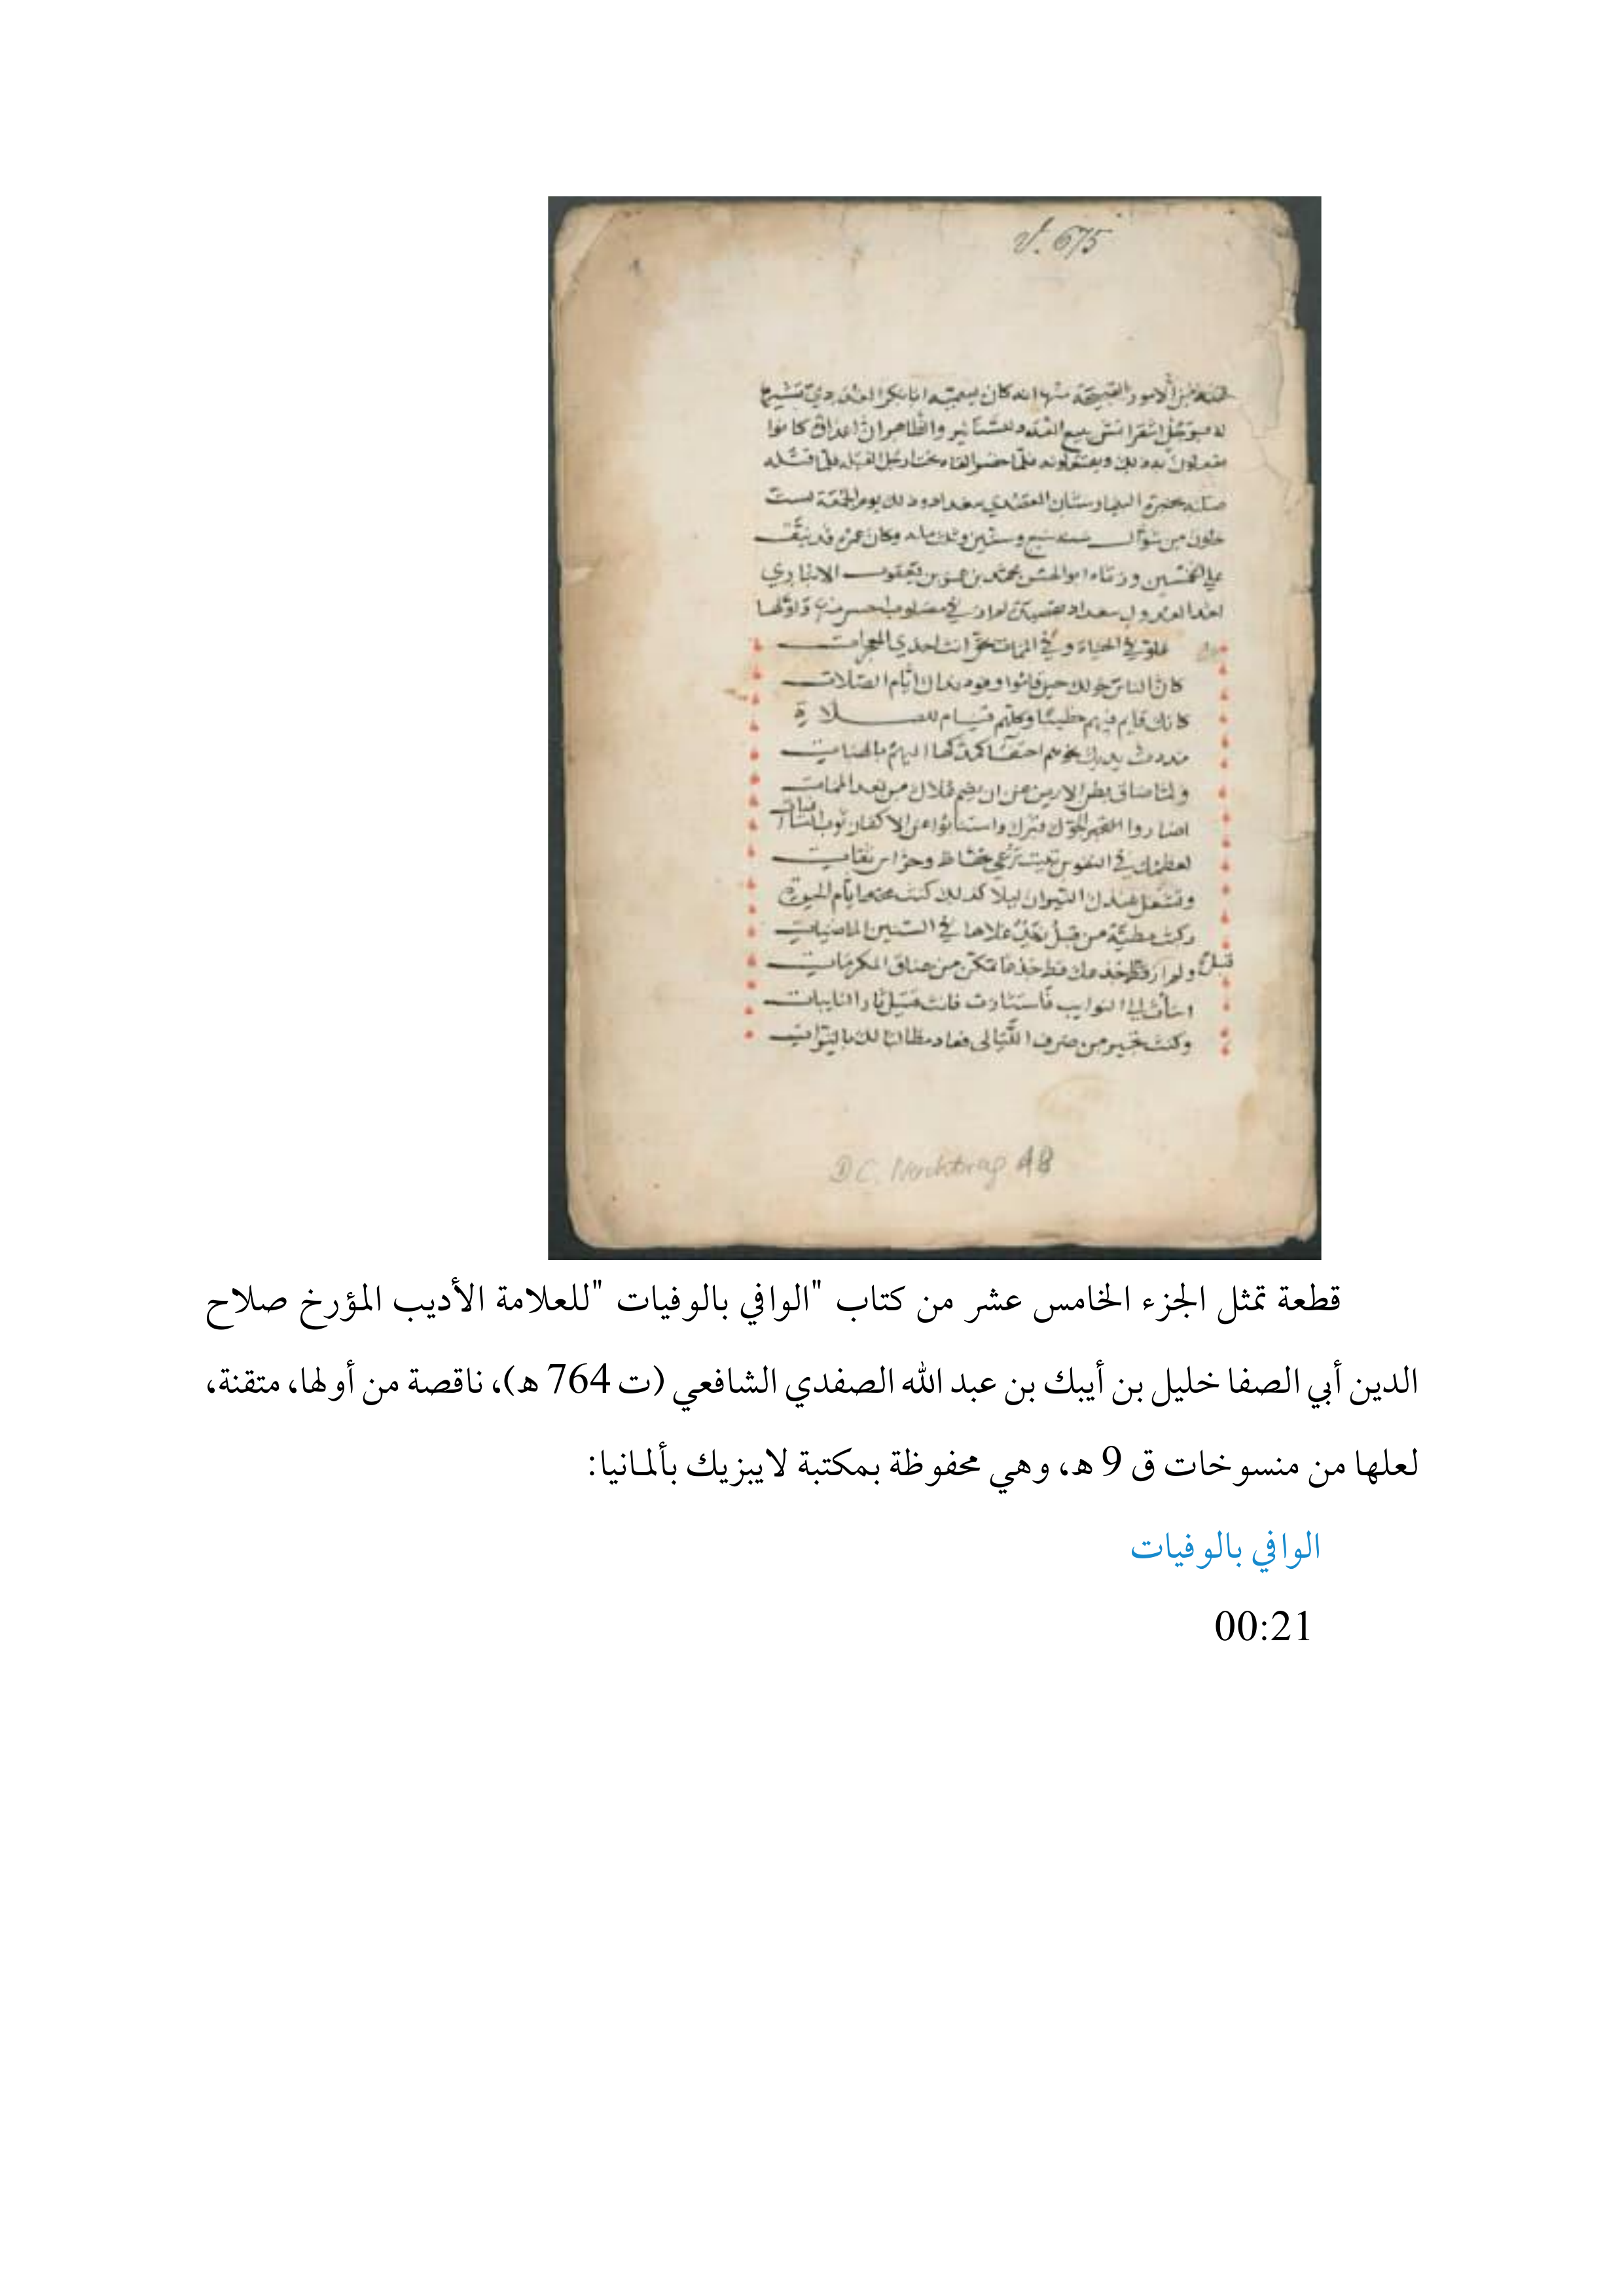 V. 675
منها انه كان يسميه ابا بكر الغددي تشبيها
له برجل اشقر انمش يبيع الغدد للسنانير
فلما حضر القاه تحت ارجل الفيله فلما قتله
صلبه بحضرة البيمارستان العضدي ببغداد وذلك يوم الجمعة لست
خلون من شوال سنه سبع وستين وثلثمايه وكان عمره قد نيف
علي الخمسين ورثاه ابو الحسن محمد بن عمر بن يعقوب الانباري
احد العدول ببغداد بقصيدة لم ار في مصلوب احسن منها واولها
علو في الحياة وفي الممات لحق انت احدي المعجزات
كان الناس حولك حين قاموا وفود نداك ايام الصلات
كانك قايم فيهم خطيبا وكلهم قيام للصلاة
مددت يديك نحوهم احتفا كمدكها اليهم بالهبات
ولما ضاق بطن الارض عن ان يضم علاك من بعد الممات
اصاروا الجو قبرك واستنابوا عن الاكفان ثوب السافيات
لعظمك في النفوس تبيت ترعي بحفاظ وحراس ثقات
وتشعل عندك النيران ليلا كذلك كنت ايام الحيوة
ركبت مطية من قبل علاها في السنين الماضيات
ولم ار قبل جذعك قط جذعا تمكن من عناق المكرمات
اسات الي النوايب فاستثارت فانت قتيل ثار النايبات
وكنت تجير من صرف الليالي فعاد مطالبا لك بالترات
D.C. Nachtrag 48
قطعة تمثل الجزء الخامس عشر من كتاب "الوافي بالوفيات "للعلامة الأديب المؤرخ صلاح
الدين أبي الصفا خليل بن أيبك بن عبد الله الصفدي الشافعي (ت 764 هـ)، ناقصة من أولها، متقنة،
لعلها من منسوخات ق 9 هـ، وهي محفوظة بمكتبة لايبزيك بألمانيا:
الوافي بالوفيات
00:21